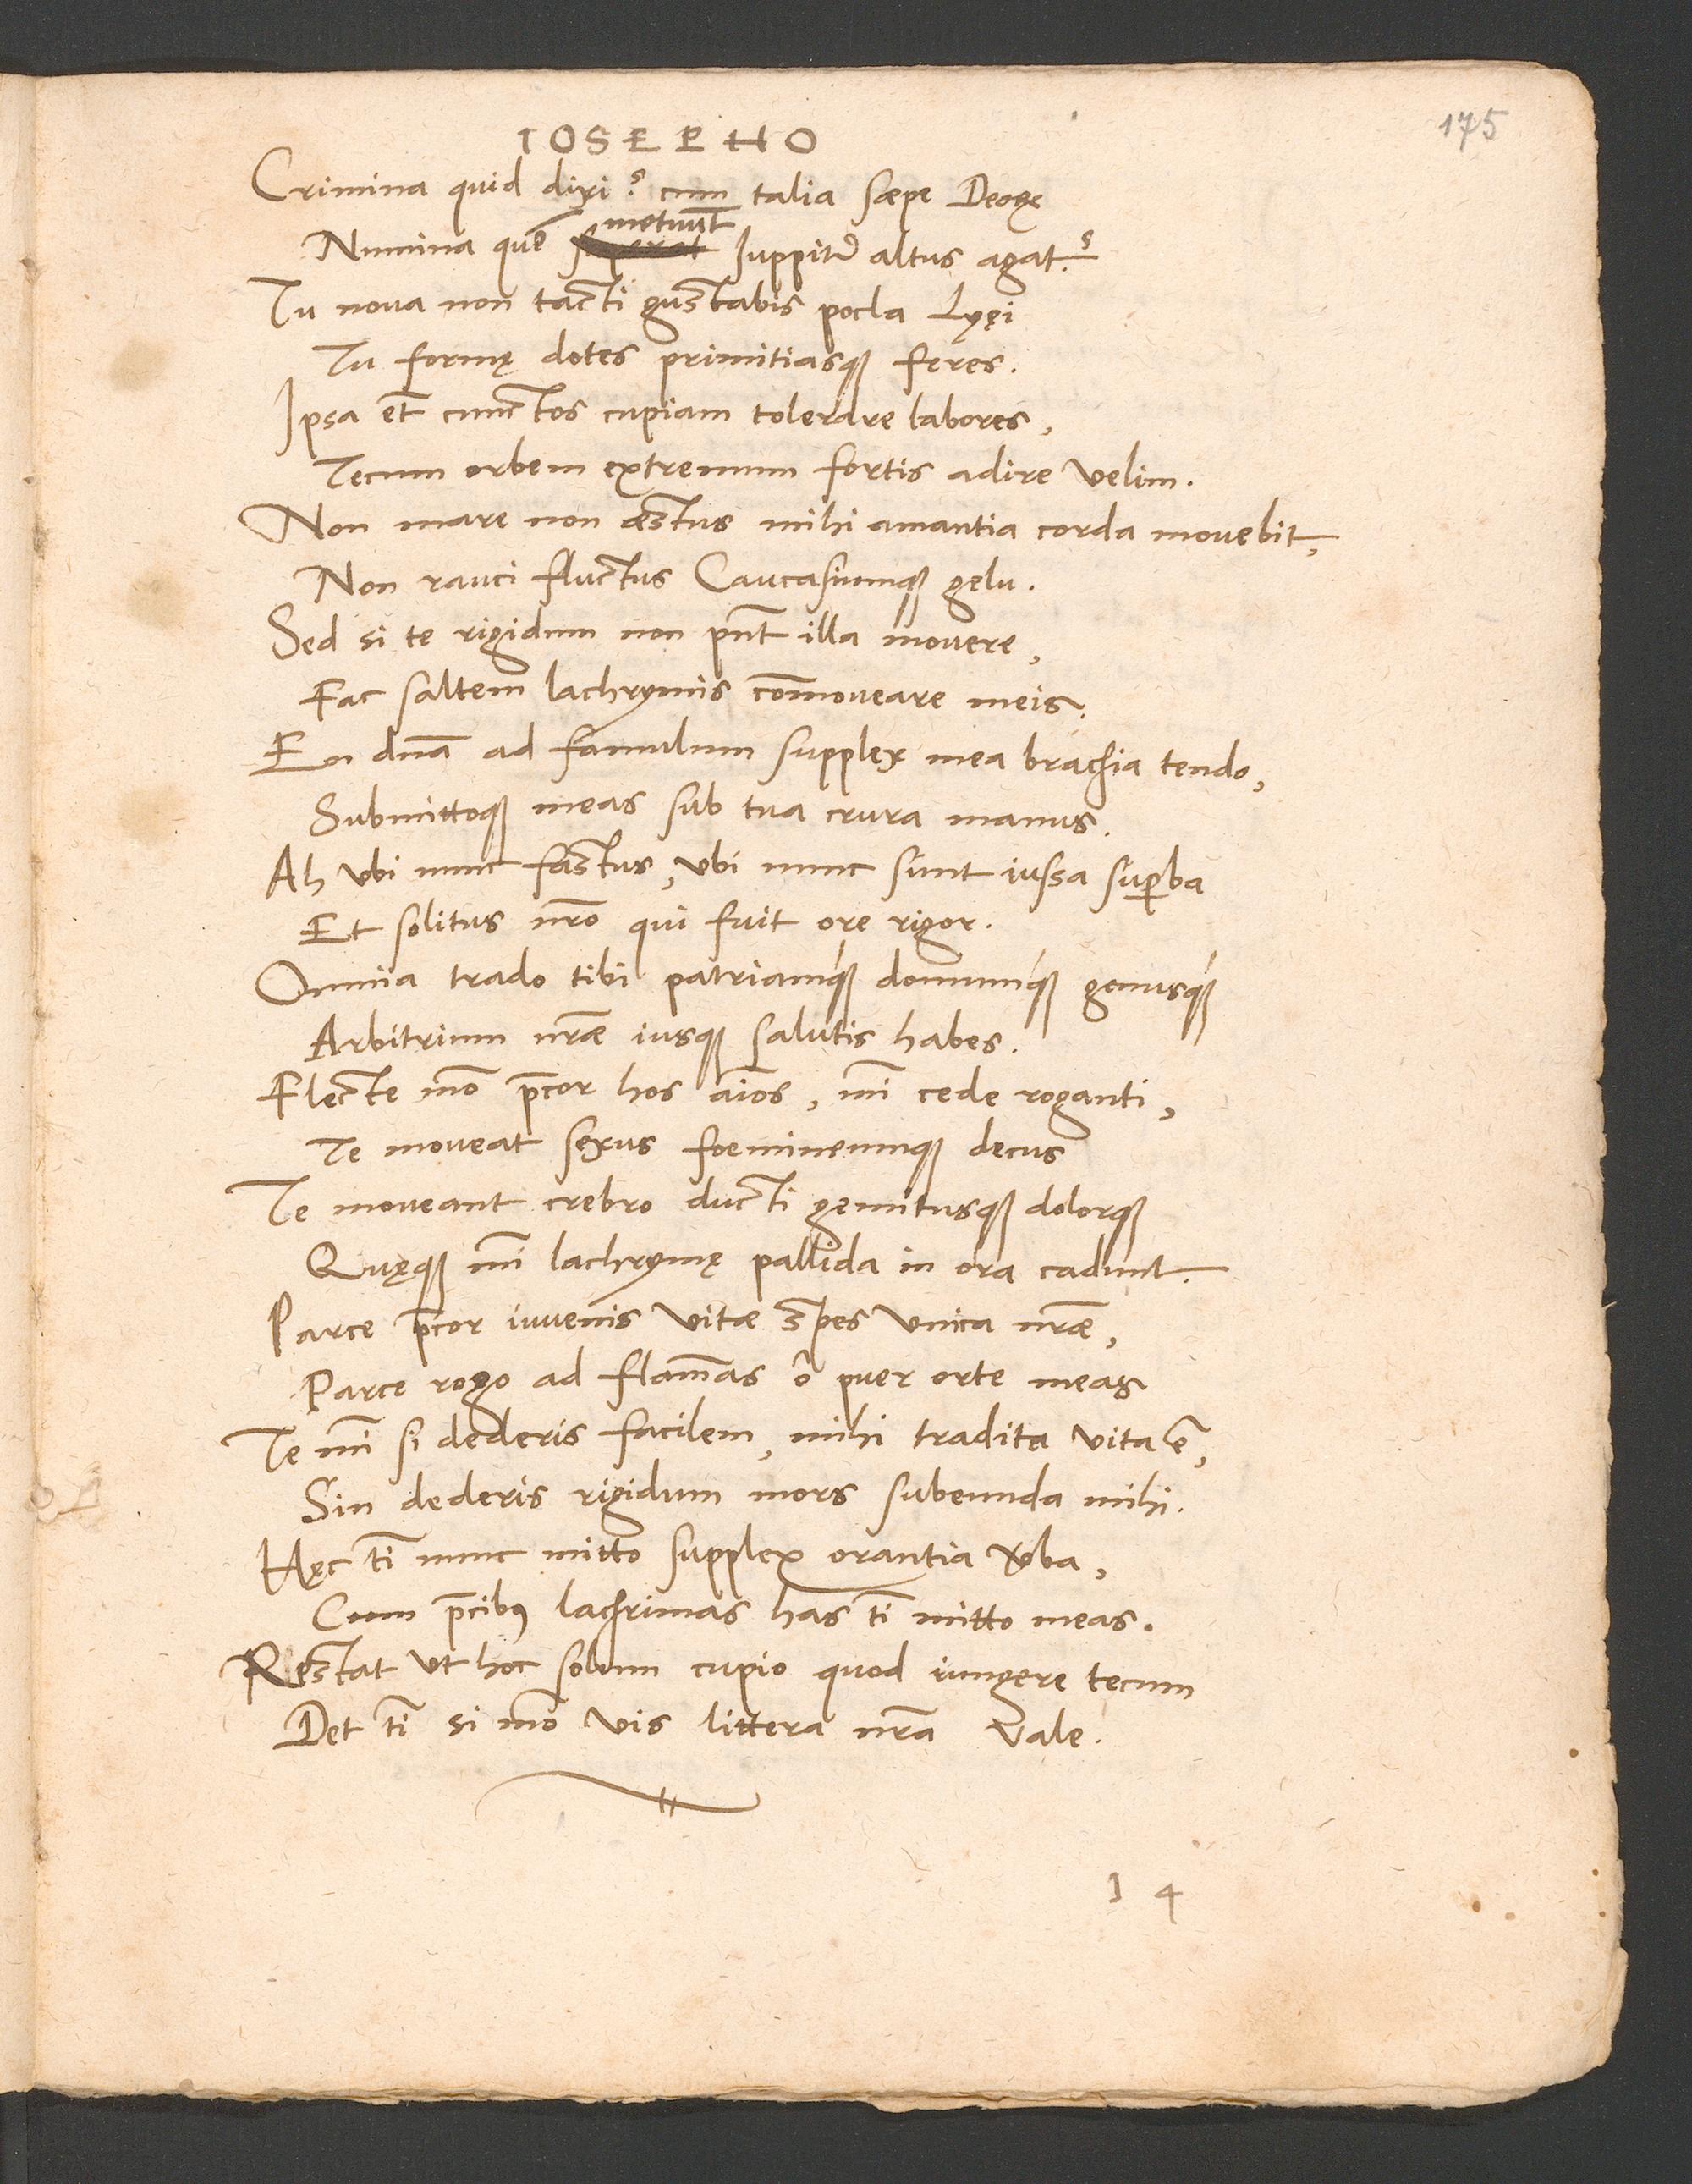 175
IOSEPHO
Crimina quid dixi? cum talia sæpe Deoꝝ
metuūt
Numina quē Iuppiter altus agat?
Tu noua non tacti gustabis pocla Lyęi
Tu formę dotes primitiasq̃ feres.
Ipsa et cunctos cupiam tolerare labores,
Tecum orbem extremum fortis adire velim.
Non mare non æstus mihi amantia corda mouebit,
Non rauci fluctus Caucasiumq̃ gelu.
Sed si te rigidum non pñt illa mouere,
Fac saltem lachrymis com̄oueare meis.
En dn̄a ad famulum supplex mea brachia tendo,
Submittoq̃ meas sub tua crura manus.
Ah vbi nunc fastus, vbi nunc sunt iussa suꝑba
Et solitus nr̄o qui fuit ore rigor.
Omnia trado tibi patriamq́ꝫ domumq́ꝫ genusq́ꝫ
Arbitrium nr̄æ iusq̃ salutis habes.
Flecte mō p̄cor hos aīos, mī cede roganti,
Te moueat sexus foemineumq̃ decus
Te moueant crebro ducti gemitusq̃ dolorq̃
Quęq̃ mī lachrymę pallida in ora cadunt.
Parce p̄cor iuuenis vitæ spes vnica nr̄æ,
Parce rogo ad flam̄as ô puer orte meas
Te mī si dederis facilem, mihi tradita vita ē,
Sin dederis rigidum mors subeunda mihi.
Hęc tī nunc mitto supplex orantia v̄ba,
Cum p̄cibꝰ lachrimas has tī mitto meas.
Restat vt hoc solum cupio quod iungere tecum
Det tī si mō vis littera nr̄a Vale.
I 4